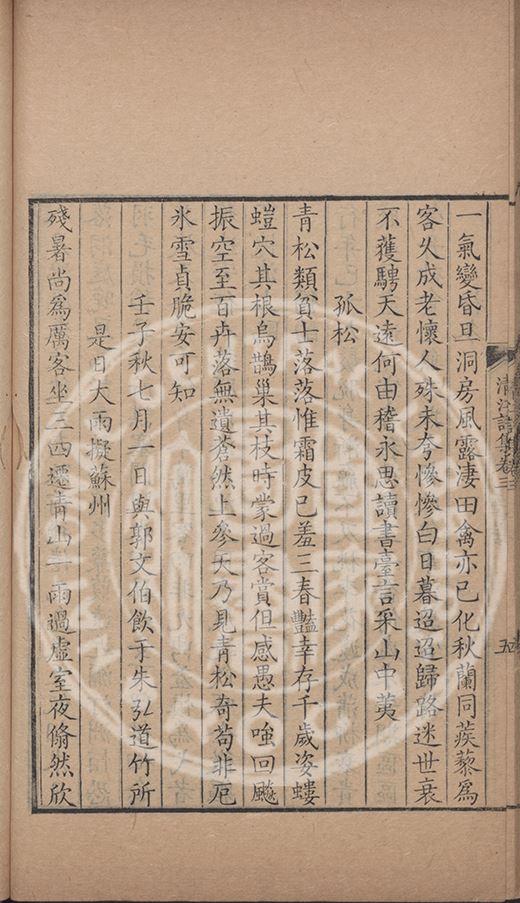 一氣變昏旦洞房風露淒田禽亦已化秋蘭同蒺藜為
客久成老懷人殊未夸慘慘白日暮迢迢歸路迷世衰
不獲騁天遠何由稽永思讀書臺言采山中荑
孤松
青松類貧士落落惟霜皮已羞三春豔幸存千歲姿螻
螘穴其根烏鵲巢其枝時蒙過客賞但感愚夫嗤回飈
振空至百卉落無遺蒼然上參天乃見青松奇苟非厄
氷雪貞脆安可知
壬子秋七月一日與郭文伯飲于朱弘道竹所
是日大雨擬蘇州
殘暑尚為厲客坐三四遷青山半雨過虛室夜翛然欣
清江詩集卷三
五